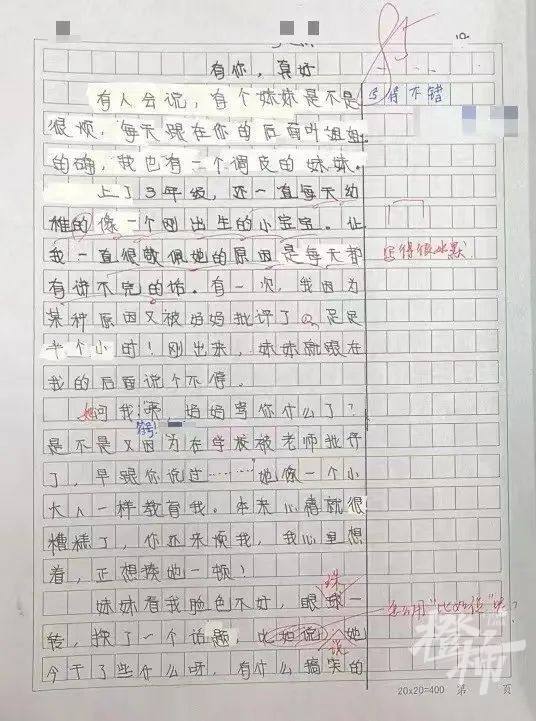 85
有你，真好
有人会说，有个妹妹是不是
写得不错
很烦，每天跟在你的后面叫姐姐。
的确，我也有一个调皮的妹妹。
上了3年级，还一直每天幼
稚的像一个刚出生的小宝宝。让
我一直很敬佩她的原因是每天都
写得很幽默
有讲不完的话。有一次，我因为
某种原因又被妈妈批评了，足足
半个小时！刚出来，妹妹就跟在
我的后面说个不停。
她问我：“嘿，妈妈骂你什么了？
符号！
是不是又因为在学校被老师批评
了，早跟你说过……”她像一个小
大人一样教育我。本来心情就很
糟糕了，你还来烦我，我心里想
着，正想揍她一顿！
珠
妹妹看我脸色不好，眼球一
怎么用“比如说”呢？
转，换了一个话题，比如说，她
说
今天干了些什么呀，有什么搞笑的
橙柿
20×20=400 第 页